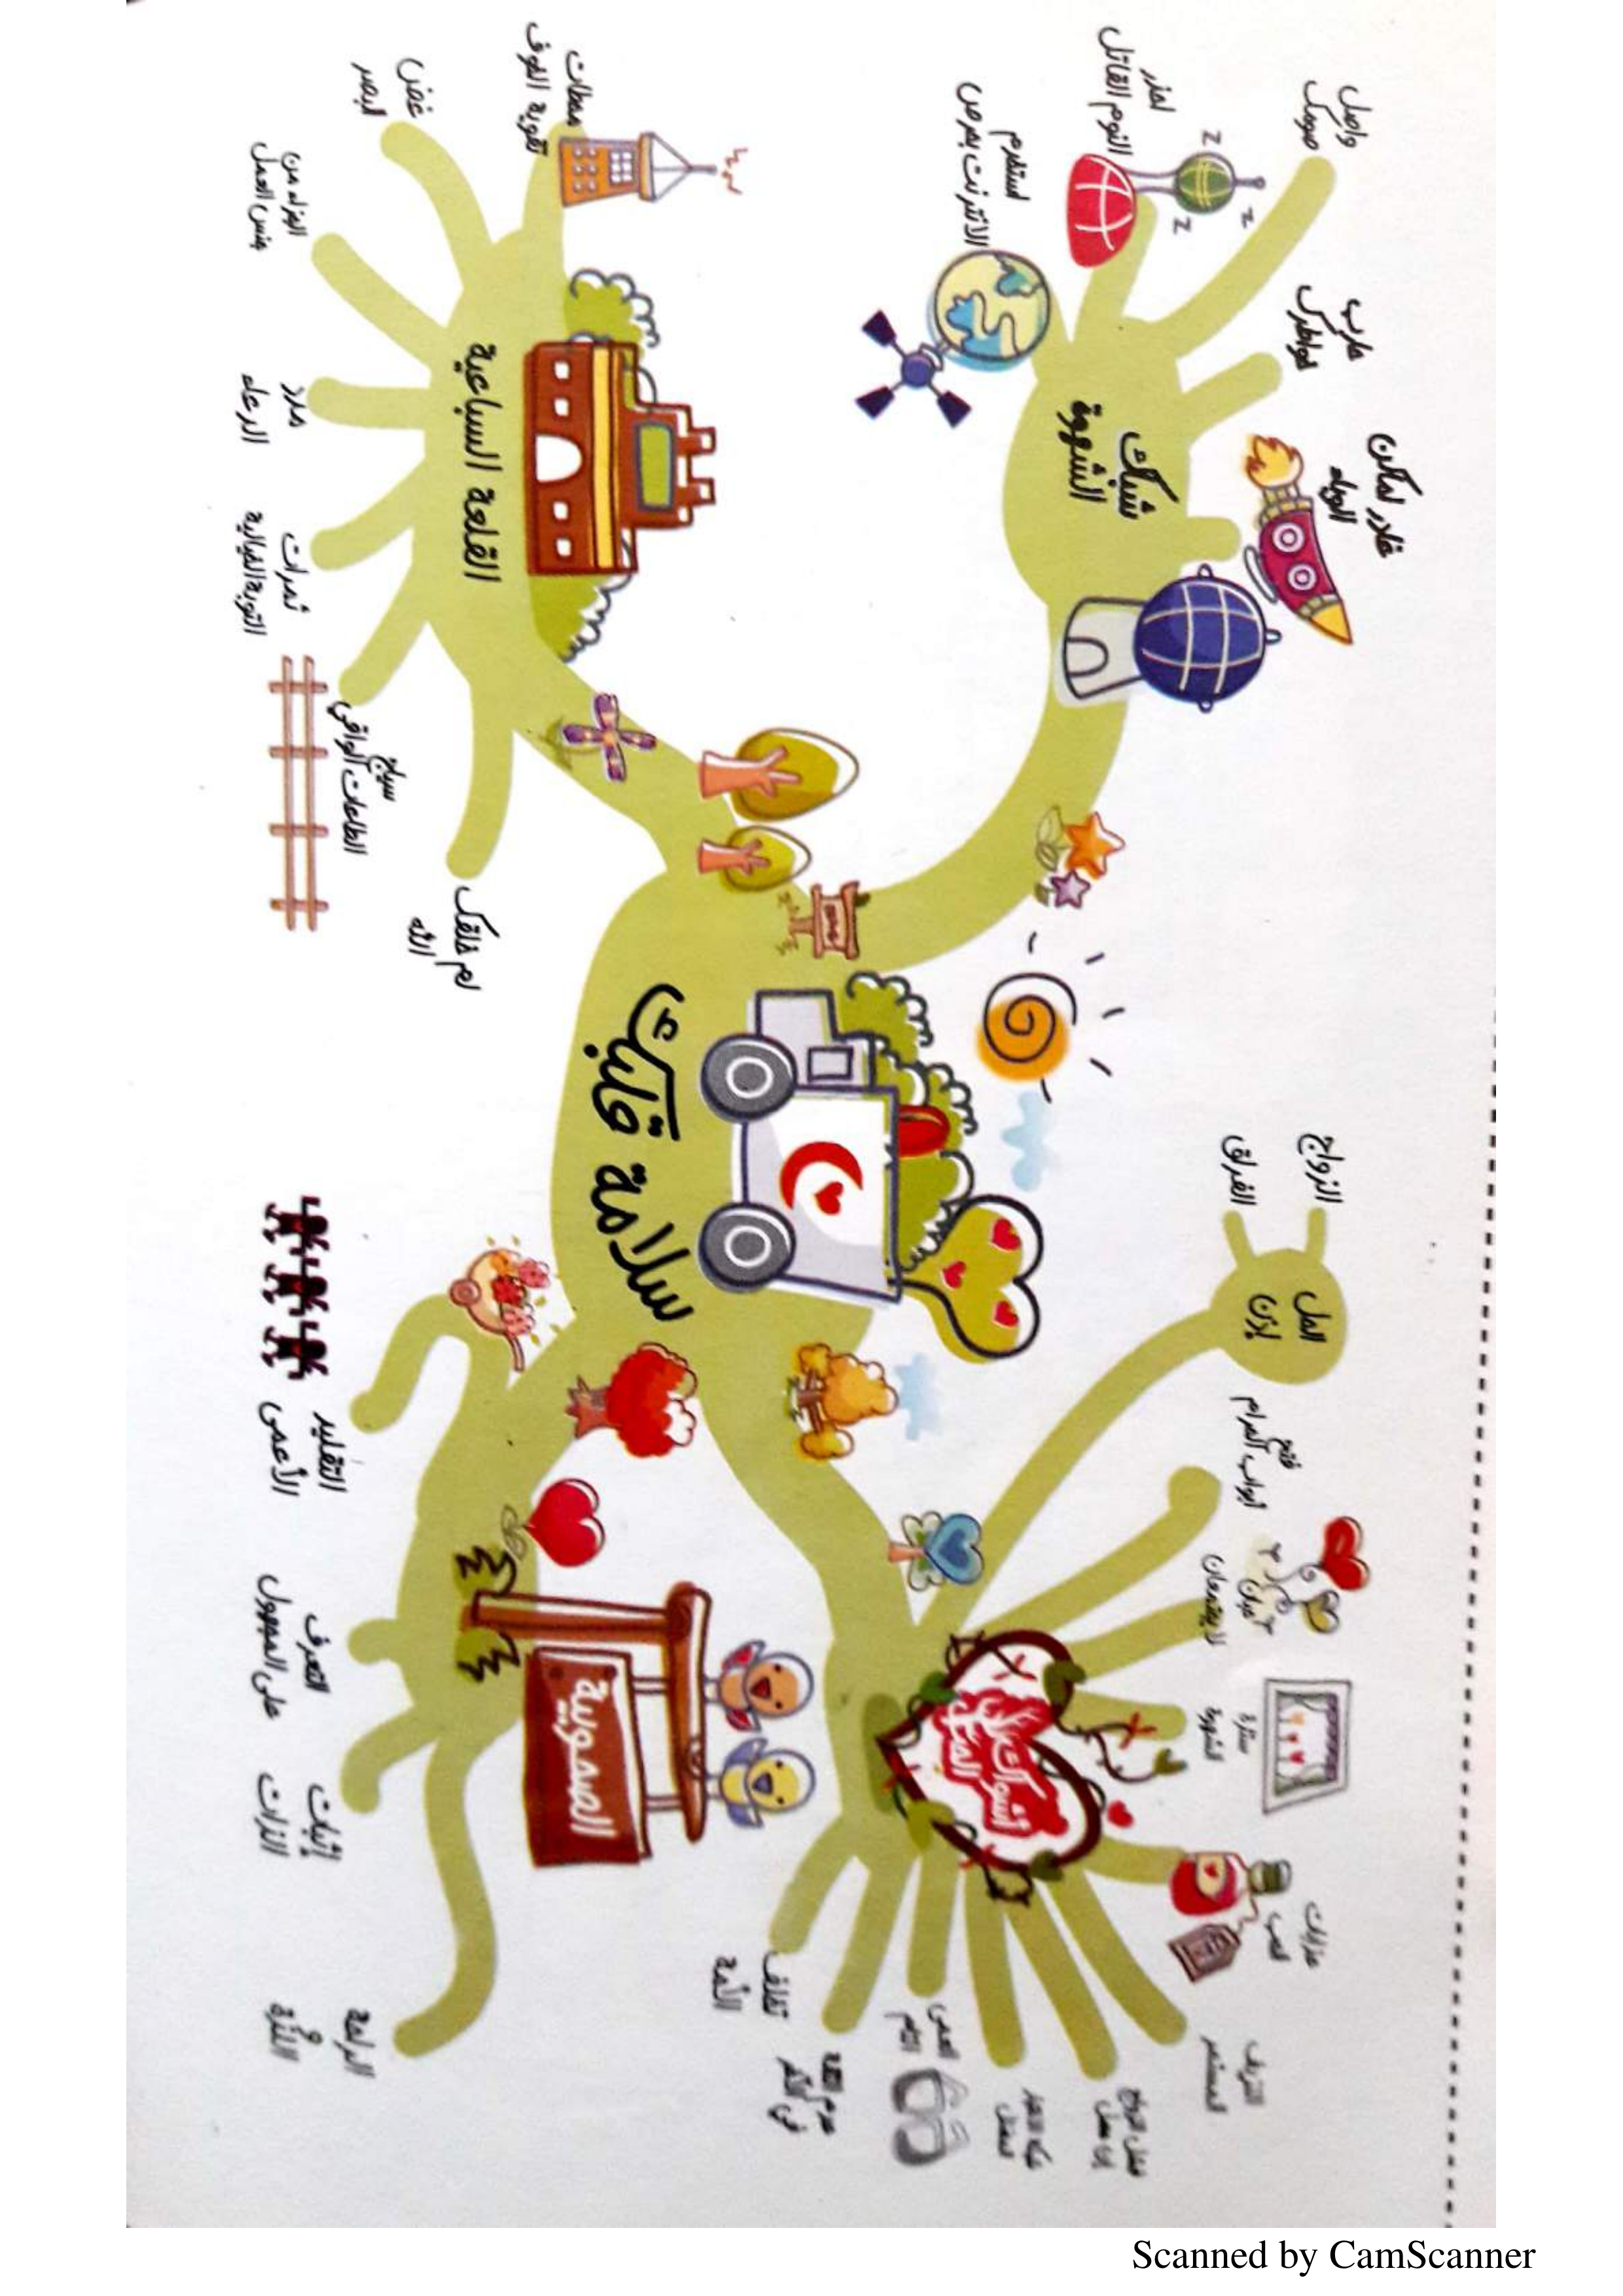 سلامة قلبك
شبك
الشهوة
واصل
صومك
حارب
خواطرك
غادر أماكن
الوباء
احذر
النوم القاتل
استخدم
الانترنت بحرص
القلعة السباعية
محطات
تقوية الخوف
غض
البصر
الجزاء من
جنس العمل
مدد
الدعاء
ثمرات
التوبة الخيالية
سياج
الطاعات الواقي
لم خلقك
الله
الحل
إذن
الزواج
الفراق
أشواك
الحب
فتح
أبواب الحرام
حبان
لا يجتمعان
سترة
الشهوة
عذابات
الحب
النزيف
المستمر
فشل الزواج
العمى
التام
عدم الثقة
في الآخر
تخلف
الأمة
الصحوبية
التقليد
الأعمى
التعرف
على المجهول
إثبات
الذات
الراحة
و
اللذة
Scanned by CamScanner